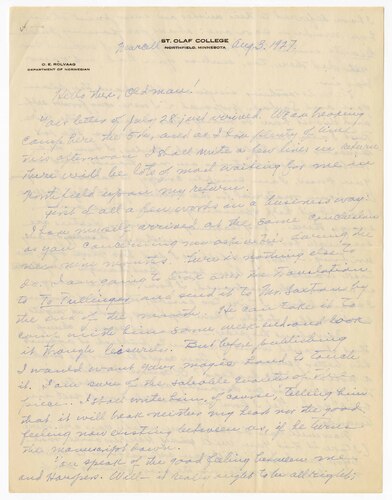 ST. OLAF COLLEGE
NORTHFIELD, MINNESOTA
Marcell Aug 3. 1927.
O. E. ROLVAAG
DEPARTMENT OF NORWEGIAN
Hello there, Old man!
Your letter of July 28 just arrived. We are breaking
camp here the 5th, and as I have plenty of time
this afternoon I shall write a few lines in return.
There will be lots of mail waiting for me in
Northfield upon my return.
First of all a few words in a business way:
I have myself arrived at the same conclusion
as you concerning my activities during the
next few months. There is nothing else to
do. I am going to the translation
to and send it to Mr. Saxton by
the end of the month. He can take it to
camp with him some week end and look
it through leisurely. But before publishing
I would want your magic hand to touch
it. I am sure of the saleable quality of
I shall write him, of course, telling him
that it will break neither my head nor the good
feeling now existing between us, if he turns
the manuscript down.
You speak of the good feeling between me
and Harpers. Well - it really ought to be all right;